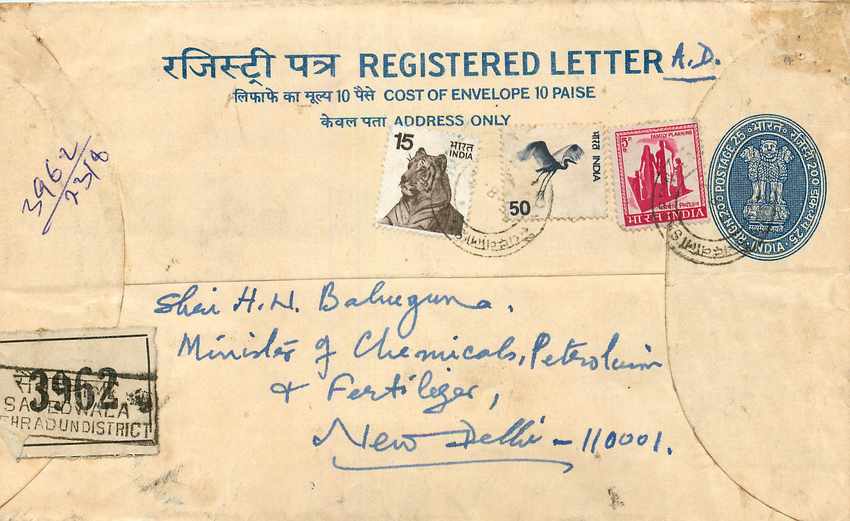 रजिस्ट्री पत्र REGISTERED LETTER A.D.
लिफाफे का मूल्य 10 पैसे COST OF ENVELOPE 10 PAISE
केवल पता ADDRESS ONLY
3962
23/8
15 भारत INDIA
50 भारत INDIA
FAMILY PLANNING
भारत INDIA
REGN 200 POSTAGE 25 भारत रजिस्ट्री 200 डाक-व्यय 25
सत्यमेव जयते
INDIA
Shri H. N. Bahuguna.
Minister of Chemicals, Petroleum
& Fertilizer,
New Delhi - 110001.
3962
HRADUN DISTRICT